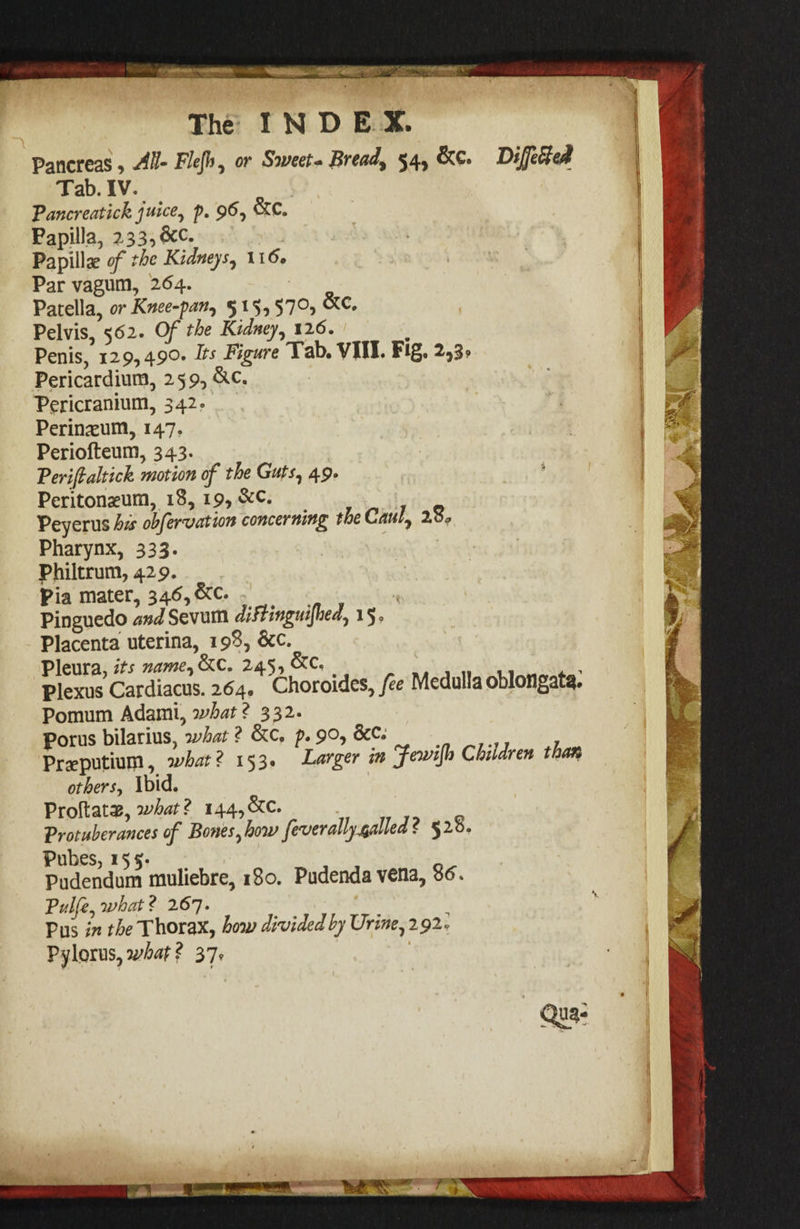 The INDEX.
Pancreas, All-Fleſh, or Sweet-Bread, 54, &c. Diſſected
Tab. IV.
Pancreatick juice, p. 96, &c.
Papilla, 233, &c.
Papillæ of the Kidneys, 116.
Par vagum, 264.
Patella, or Knee-pan, 515, 570, &c.
Pelvis, 562. Of the Kidney, 126.
Penis, 129, 490. Its Figure Tab. VIII. Fig. 2,3.
Pericardium, 259, &c.
Pericranium, 342.
Perinæum, 147.
Perioſteum, 343.
Periſtaltick motion of the Guts, 49.
Peritonæum, 18, 19, &c.
Peyerus his obſervation concerning the Caul, 28.
Pharynx, 333.
Philtrum, 429.
Pia mater, 346, &c.
Pinguedo and Sevum diſtinguiſhed, 15.
Placenta uterina, 198, &c.
Pleura, its name, &c. 245, &c.
Plexus Cardiacus. 264. Choroides, ſee Medulla oblongata.
Pomum Adami, what? 332.
Porus bilarius, what? &c, p. 90, &c.
Præputium, what? 153. Larger in Jewiſh Children than
others, Ibid.
Proſtatæ, what? 144, &c.
Protuberances of Bones, how ſeverally called? 528.
Pubes, 155.
Pudendum muliebre, 180. Pudenda vena, 86.
Pulſe, what? 267.
Pus in the Thorax, how divided by Urine, 292.
Pylorus, what? 37.
Qua-